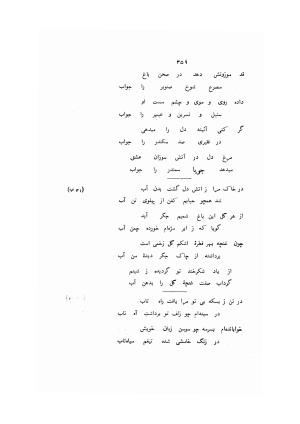 ۳۵۹
قد موزونش دهد در صحن باغ
مصرع شوخ صنوبر را جواب
داده روی و موی و چشم مست او
سنبل و نسرین و عبهر را جواب
گر کنی آئینه دل را صیقلی
در نظیری صد سکندر را جواب
مرغ دل در آتش سوزان عشق
میدهد جویا سمندر را جواب
در خاک مرا ز آتش دل گشت بدن آب
شد همچو حبابم کفن از پهلوی تن آب
از هر گل این باغ شمیم جگر آید
گویا که ز ابر مژه‌ام خورده چمن آب
چون غنچه بهر قطرهٔ اشکم گل زخمی است
برداشته از چاک جگر دیدهٔ من آب
از یاد شکرخند تو گردیده ز مستی
گرداب صفت غنچهٔ گل را بدهن آب
در تن ز بسکه بی تو مرا یافت راه تاب
در سینه‌ام چو زلف تو برداشت آه تاب
خوابانده‌ام بسرمه چو سوسن زبان خویش
در رنگ خامشی شده تیغم سیاه‌تاب